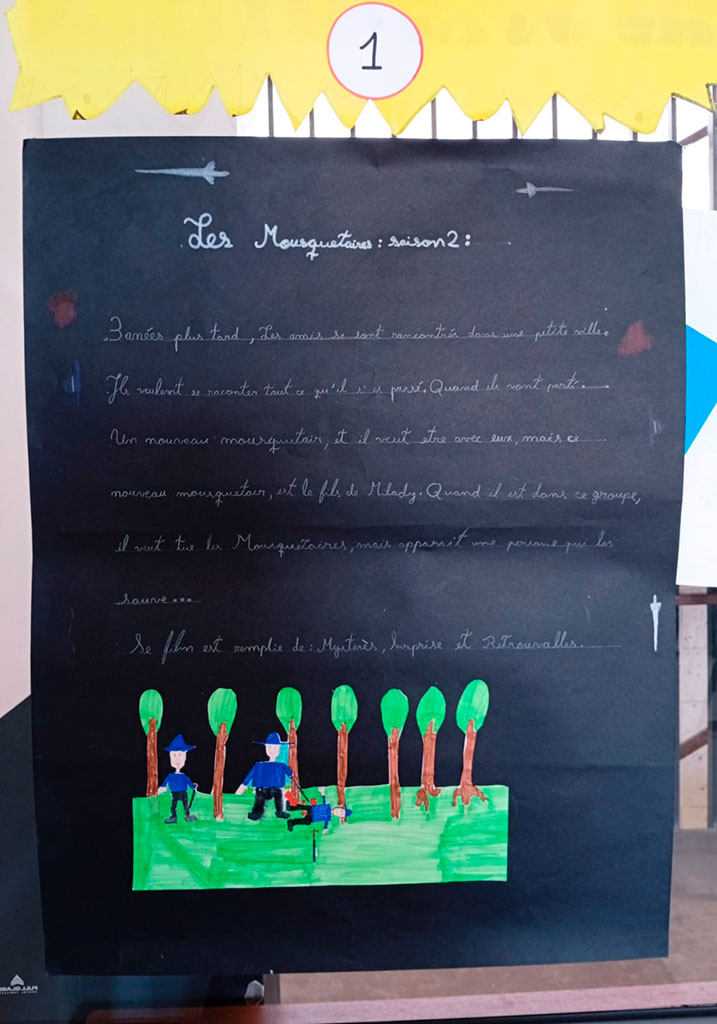 1
Les Mousquetaires : saison 2 :
3 anées plus tard, Les amis se sont rancontrés dans une petite ville.
Ils veulent se raconter tout ce qu'il s'es passé. Quand ils vont parti.
Un nouveau mousquetair, et il veut etre avec eux, mais ce
nouveau mousquetair, est le fils de Milady. Quand il est dans ce groupe,
il veut tue les Mousquetaires, mais apparait une persone qui les
sauve...
Se film est remplie de : Mysterès, Surprise et Retrouvalles.
FULL GLASS